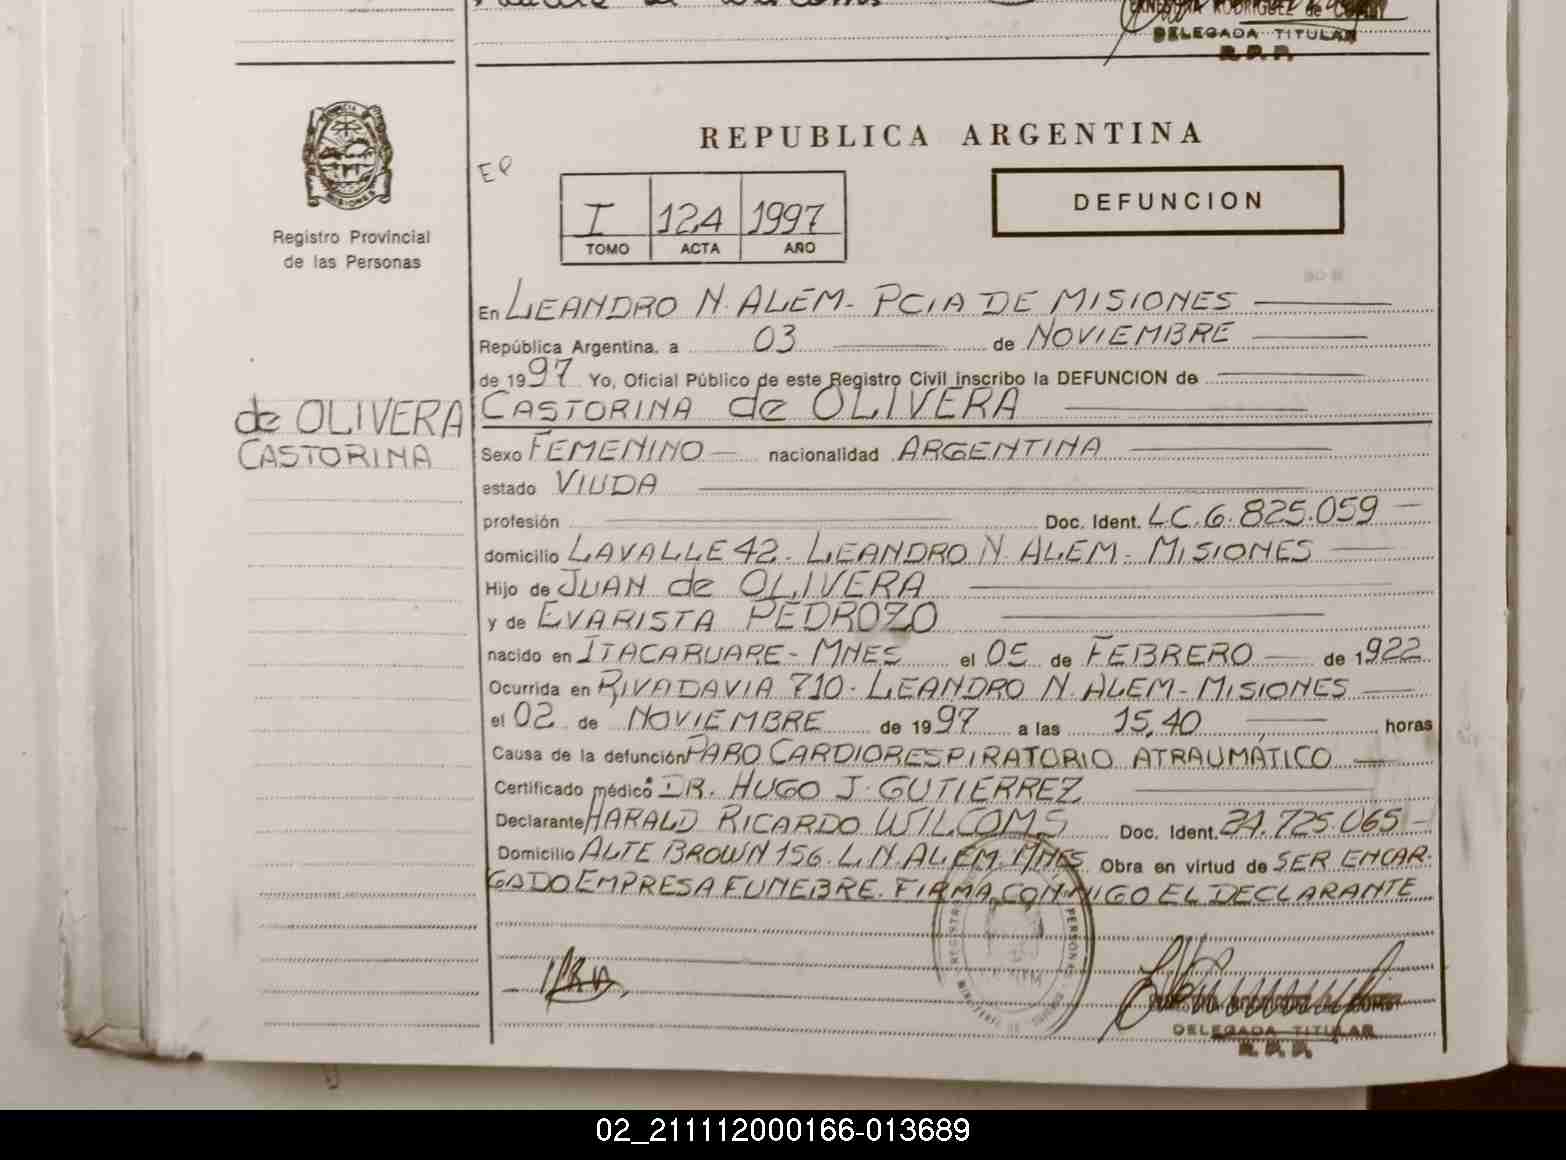 ERNESTINA RODRIGUEZ de
DELEGADA TITULAR
R.P.P.
PROVINCIA DE
MISIONES
Registro Provincial
de las Personas
REPUBLICA ARGENTINA
EP
DEFUNCION
I 124 1997
TOMO ACTA AÑO
En LEANDRO N. ALEM - PCIA DE MISIONES
República Argentina, a 03 de NOVIEMBRE
de 1997 Yo, Oficial Público de este Registro Civil inscribo la DEFUNCION de
de OLIVERA
CASTORINA
CASTORINA de OLIVERA
Sexo FEMENINO nacionalidad ARGENTINA
estado VIUDA
profesión Doc. Ident. L.C. 6.825.059
domicilio LAVALLE 42. LEANDRO N. ALEM - MISIONES
Hijo de JUAN de OLIVERA
y de EVARISTA PEDROZO
nacido en ITACARUARE - MNES el 05 de FEBRERO de 1922
Ocurrida en RIVADAVIA 710. LEANDRO N. ALEM - MISIONES
el 02 de NOVIEMBRE de 1997 a las 15,40 horas
Causa de la defunción PARO CARDIORESPIRATORIO ATRAUMÁTICO
Certificado médico DR. HUGO J. GUTIERREZ
Declarante HARALD RICARDO WILCOMS Doc. Ident. 21.725.065
Domicilio ALTE BROWN 156. L.N. ALEM. MNES Obra en virtud de SER ENCAR-
GADO EMPRESA FUNEBRE. FIRMA CONMIGO EL DECLARANTE
DELEGADA TITULAR
R.P.P.
02_211112000166-013689